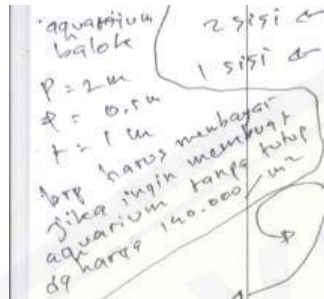 aquarium
balok
P = 2 m
l = 0.5 m
t = 1 m
brp harus membayar
jika ingin membuat
aquarium tanpa tutup
dg harga 140.000/m2
2 sisi
1 sisi